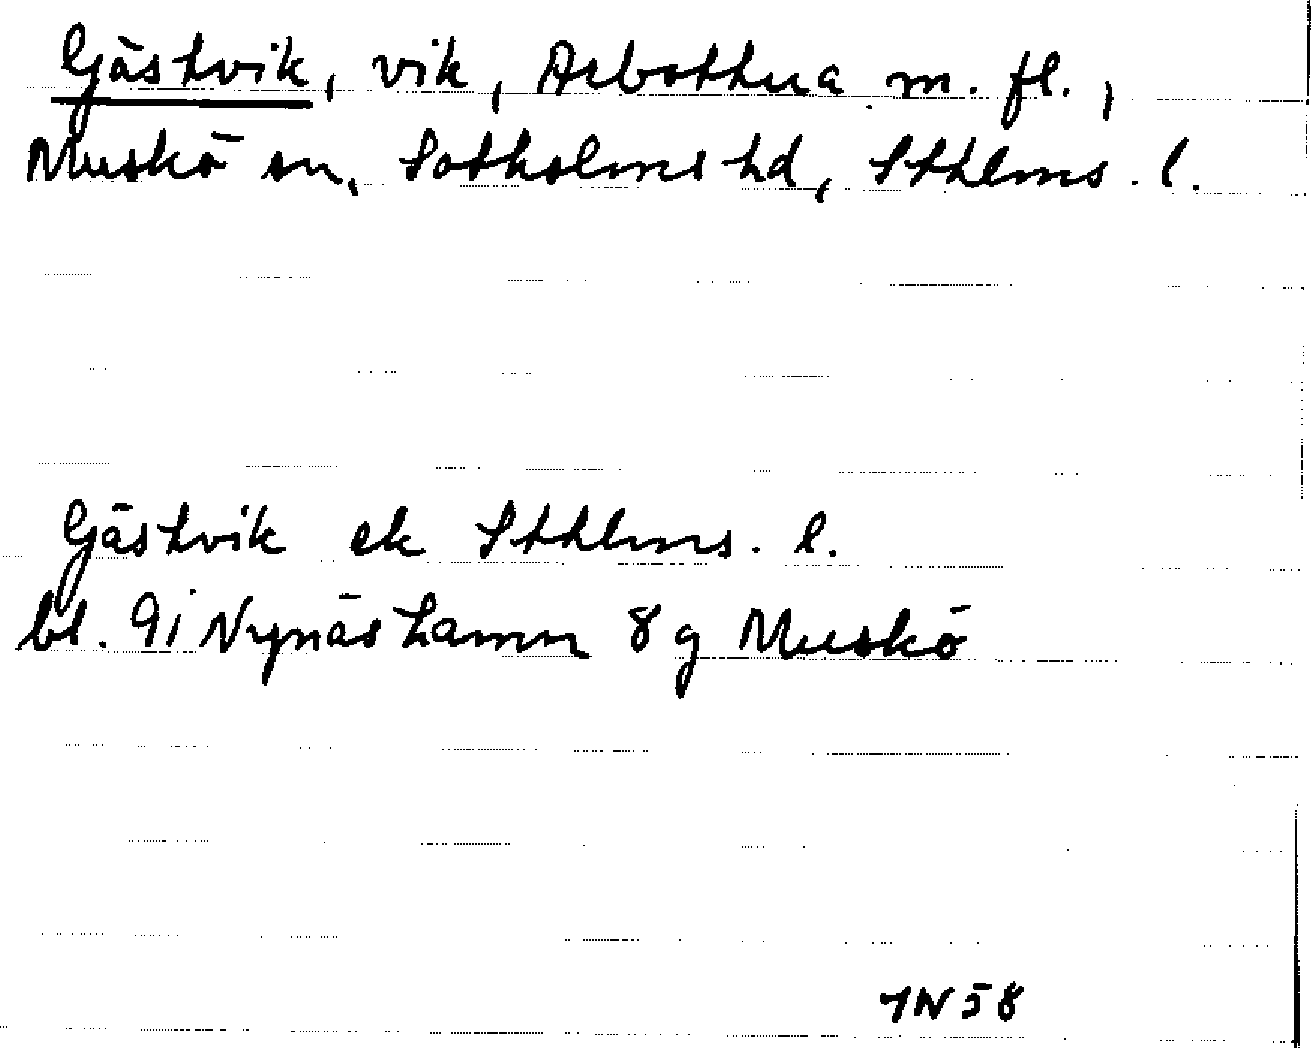 Gästvik, vik, Arbottna m. fl.,
Muskö sn, Sotholms hd, Sthlms. l.
Gästvik ek Sthlms. l.
bl. 9i Nynäshamn 8g Muskö